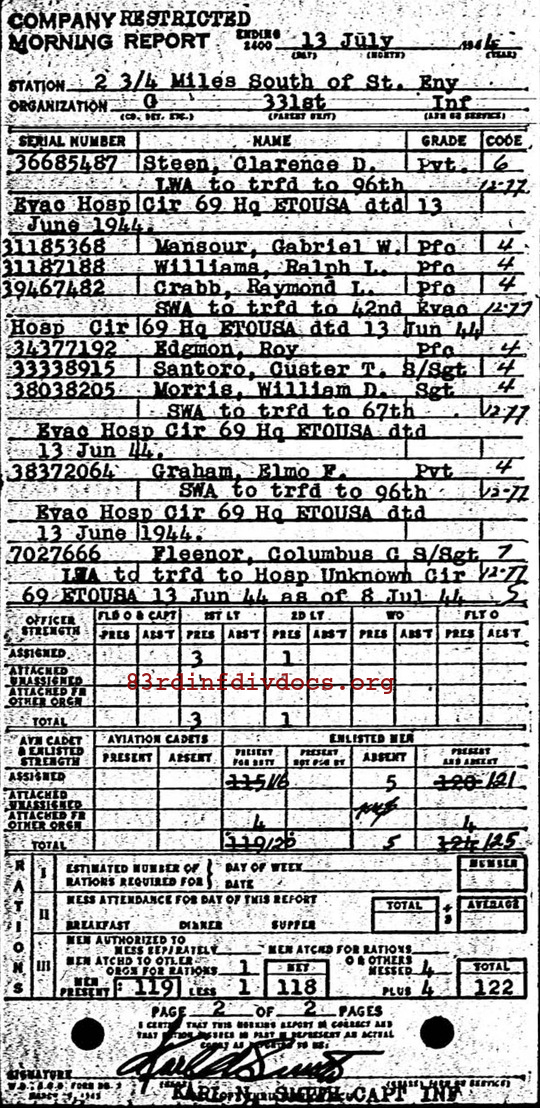 COMPANY RESTRICTED
MORNING REPORT ENDING 2400 13 July 1944
(DAY) (MONTH) (YEAR)
STATION 2 3/4 Miles South of St. Eny
ORGANIZATION G 331st Inf
(CO. DET. ETC.) (PARENT UNIT) (ARM OR SERVICE)
SERIAL NUMBER NAME GRADE CODE
36685487 Steen, Clarence D. Pvt. 6
LWA to trfd to 96th 12-77
Evac Hosp Cir 69 Hq ETOUSA dtd 13
June 1944.
31185368 Mansour, Gabriel W. Pfc 4
31187188 Williams, Ralph L. Pfc 4
39467482 Crabb, Raymond L. Pfc 4
SWA to trfd to 42nd Evac 12-77
Hosp Cir 69 Hq ETOUSA dtd 13 Jun 44
34377192 Edgmon, Roy Pfc 4
33338915 Santoro, Custer T. S/Sgt 4
38038205 Morris, William D. Sgt 4
SWA to trfd to 67th 12-77
Evac Hosp Cir 69 Hq ETOUSA dtd
13 Jun 44.
38372064 Graham, Elmo F. Pvt 4
SWA to trfd to 96th 12-77
Evac Hosp Cir 69 Hq ETOUSA dtd
13 June 1944.
7027666 Fleenor, Columbus C S/Sgt 7
LWA to trfd to Hosp Unknown Cir 12-77
69 ETOUSA 13 Jun 44 as of 8 Jul 44 5
OFFICER STRENGTH FLD O & CAPT 1ST LT 2D LT WO FLT O
PRES ABST PRES ABST PRES ABST PRES ABST PRES ABST
ASSIGNED 3 1
ATTACHED UNASSIGNED
83rdinfdivdocs.org
ATTACHED FR OTHER ORGN
TOTAL 3 1
AVN CADET & ENLISTED STRENGTH AVIATION CADETS ENLISTED MEN
PRESENT ABSENT PRESENT FOR DUTY PRESENT NOT FOR DY ABSENT PRESENT AND ABSENT
ASSIGNED 115 116 5 120 121
ATTACHED UNASSIGNED
ATTACHED FR OTHER ORGN 4 4
TOTAL 119 120 5 124 125
RATIONS
I ESTIMATED NUMBER OF RATIONS REQUIRED FOR DAY OF WEEK NUMBER
DATE
II MESS ATTENDANCE FOR DAY OF THIS REPORT TOTAL ÷ 3 AVERAGE
BREAKFAST DINNER SUPPER
III MEN AUTHORIZED TO MESS SEPARATELY MEN ATCHD FOR RATIONS
MEN ATCHD TO OTHER ORGN FOR RATIONS 1 NET O & OTHERS MESSED 4 TOTAL
MEN PRESENT 119 LESS 1 118 PLUS 4 122
PAGE 2 OF 2 PAGES
I CERTIFY THAT THIS MORNING REPORT IS CORRECT AND
SIGNATURE
KARL N. SMITH CAPT INF